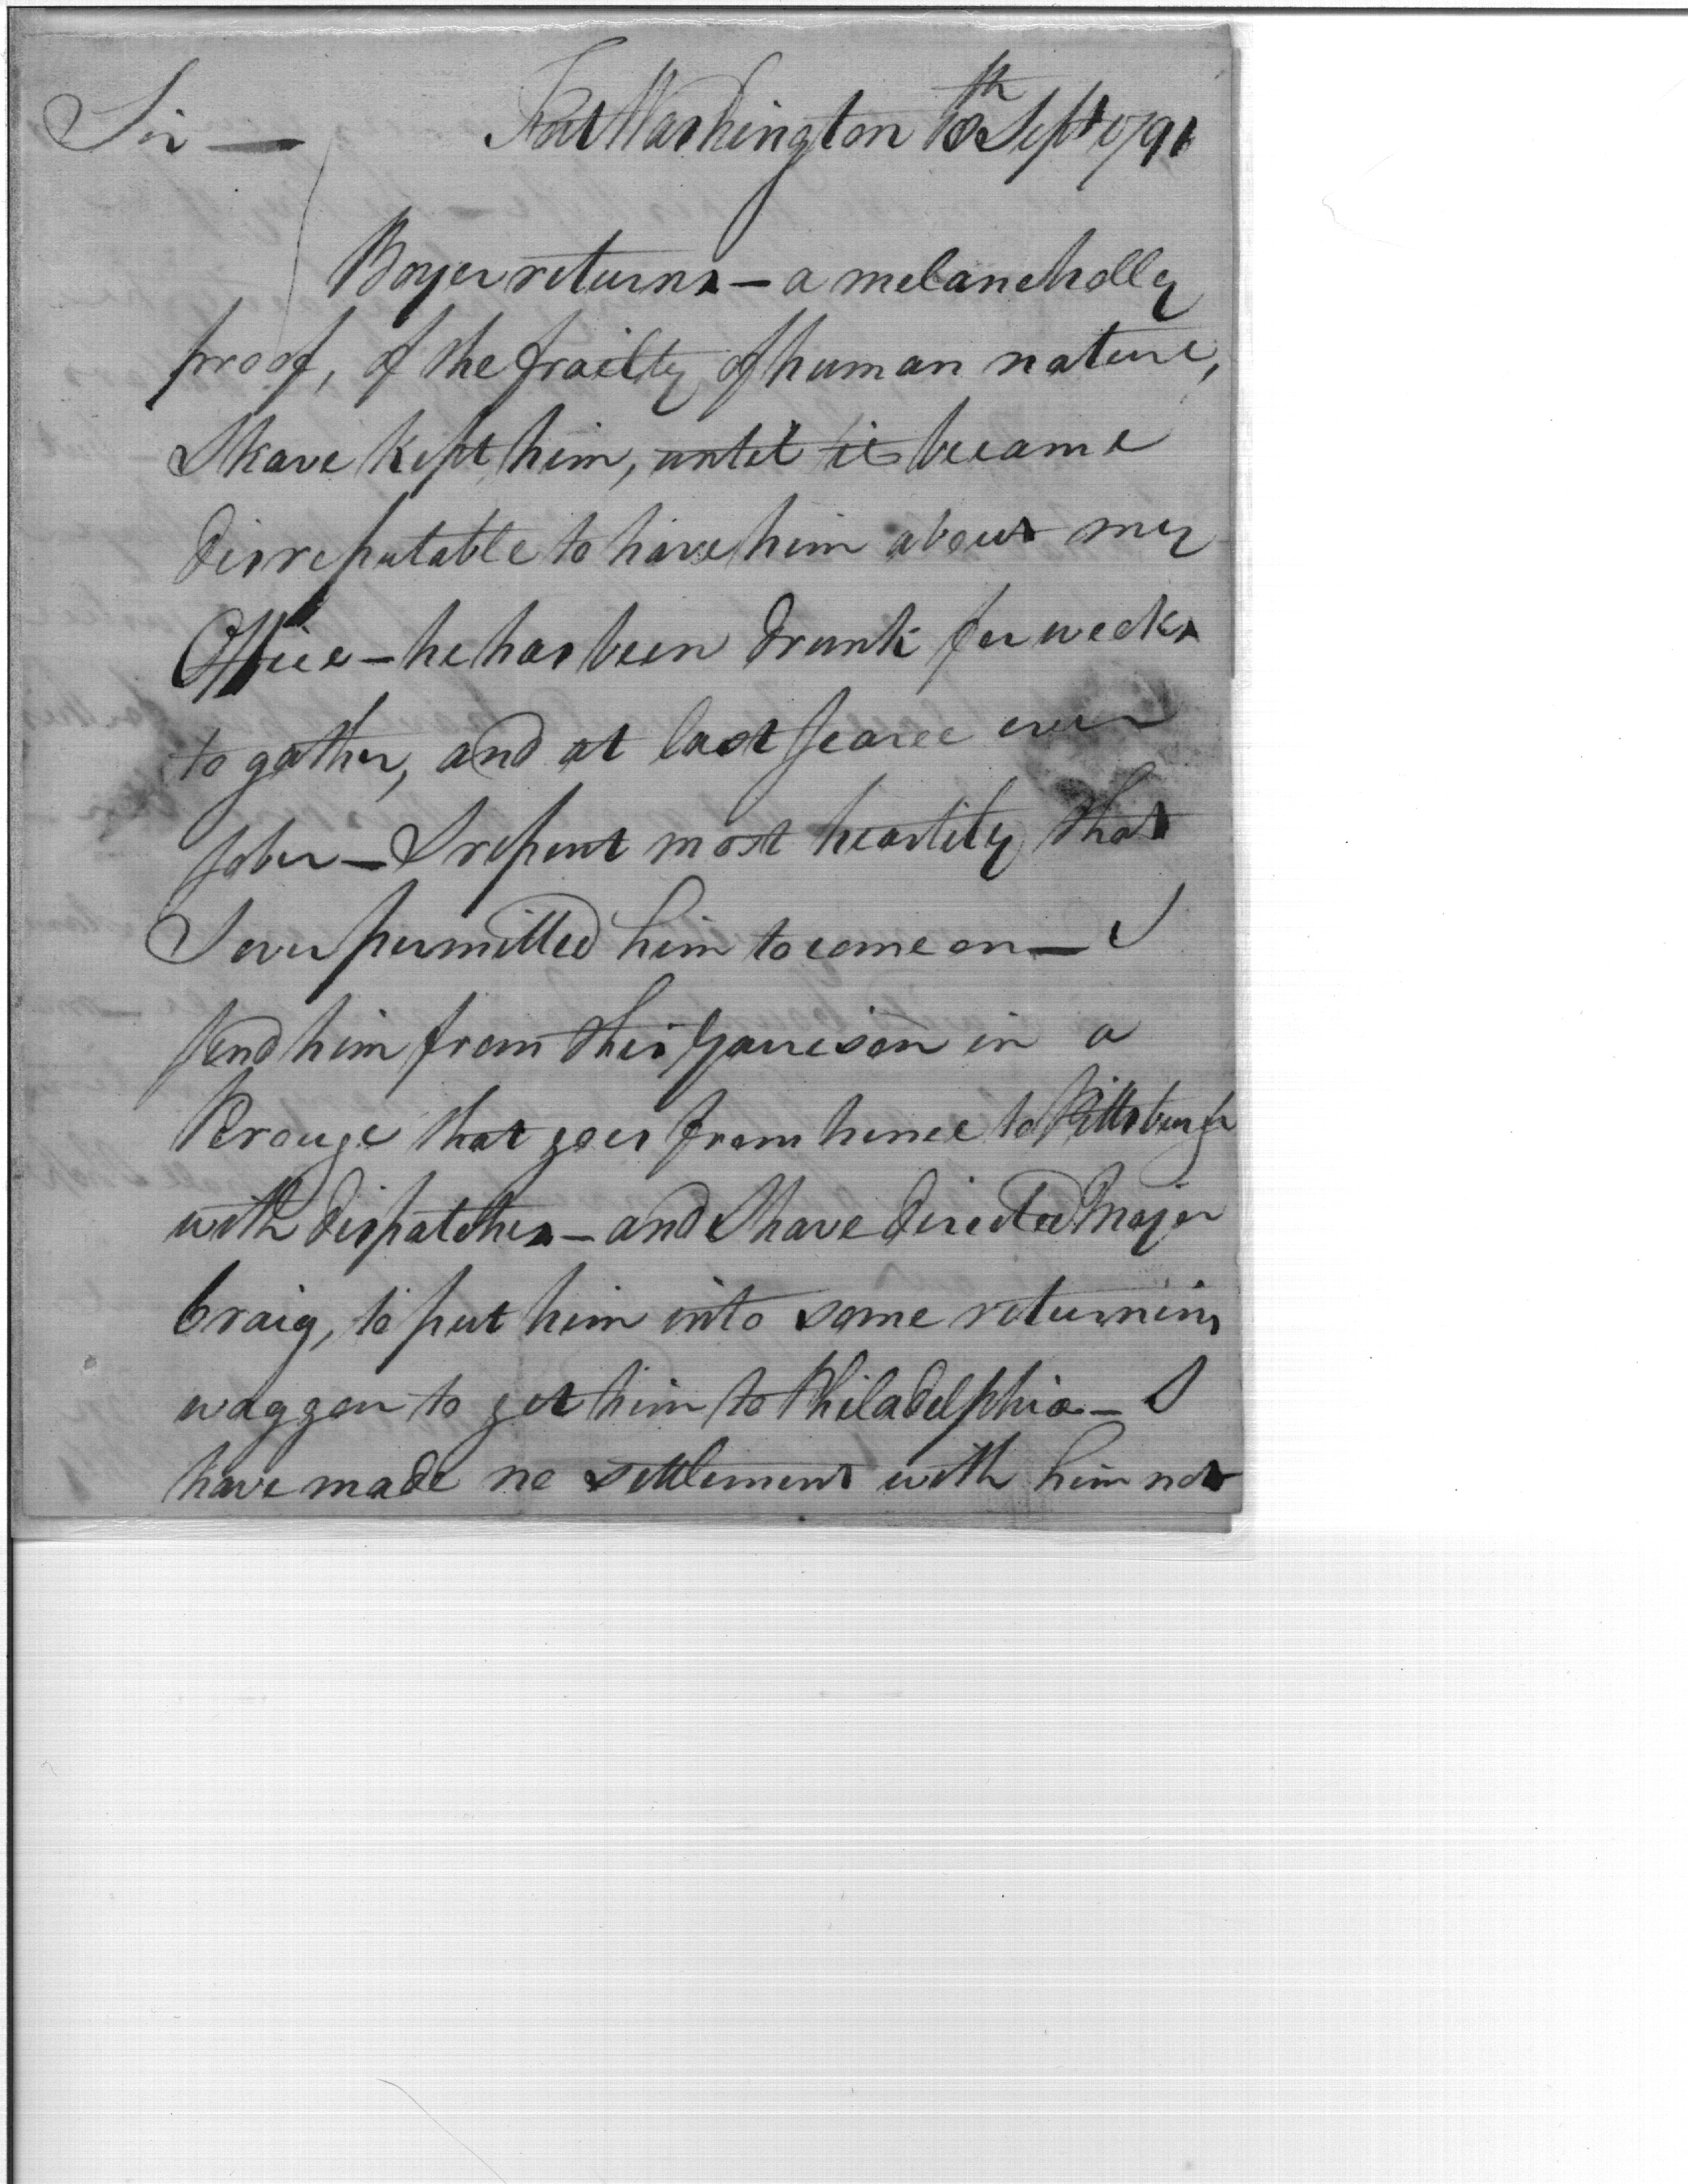 Sir — Fort Washington 18th Sept 1791
Boyer returns — a melancholly
proof, of the frailty of human nature,
I have kept him, until it became
disreputable to have him about my
Office — he has been drunk for weeks
to gather, and at last scarce ever
sober — I repent most heartily that
I ever permitted him to come on — I
send him from this garrison in a
Perouge that goes from hence to Pittsburgh
with dispatches — and I have directed Major
Craig, to put him into some returning
waggon to get him to Philadelphia — I
have made no settlement with him nor